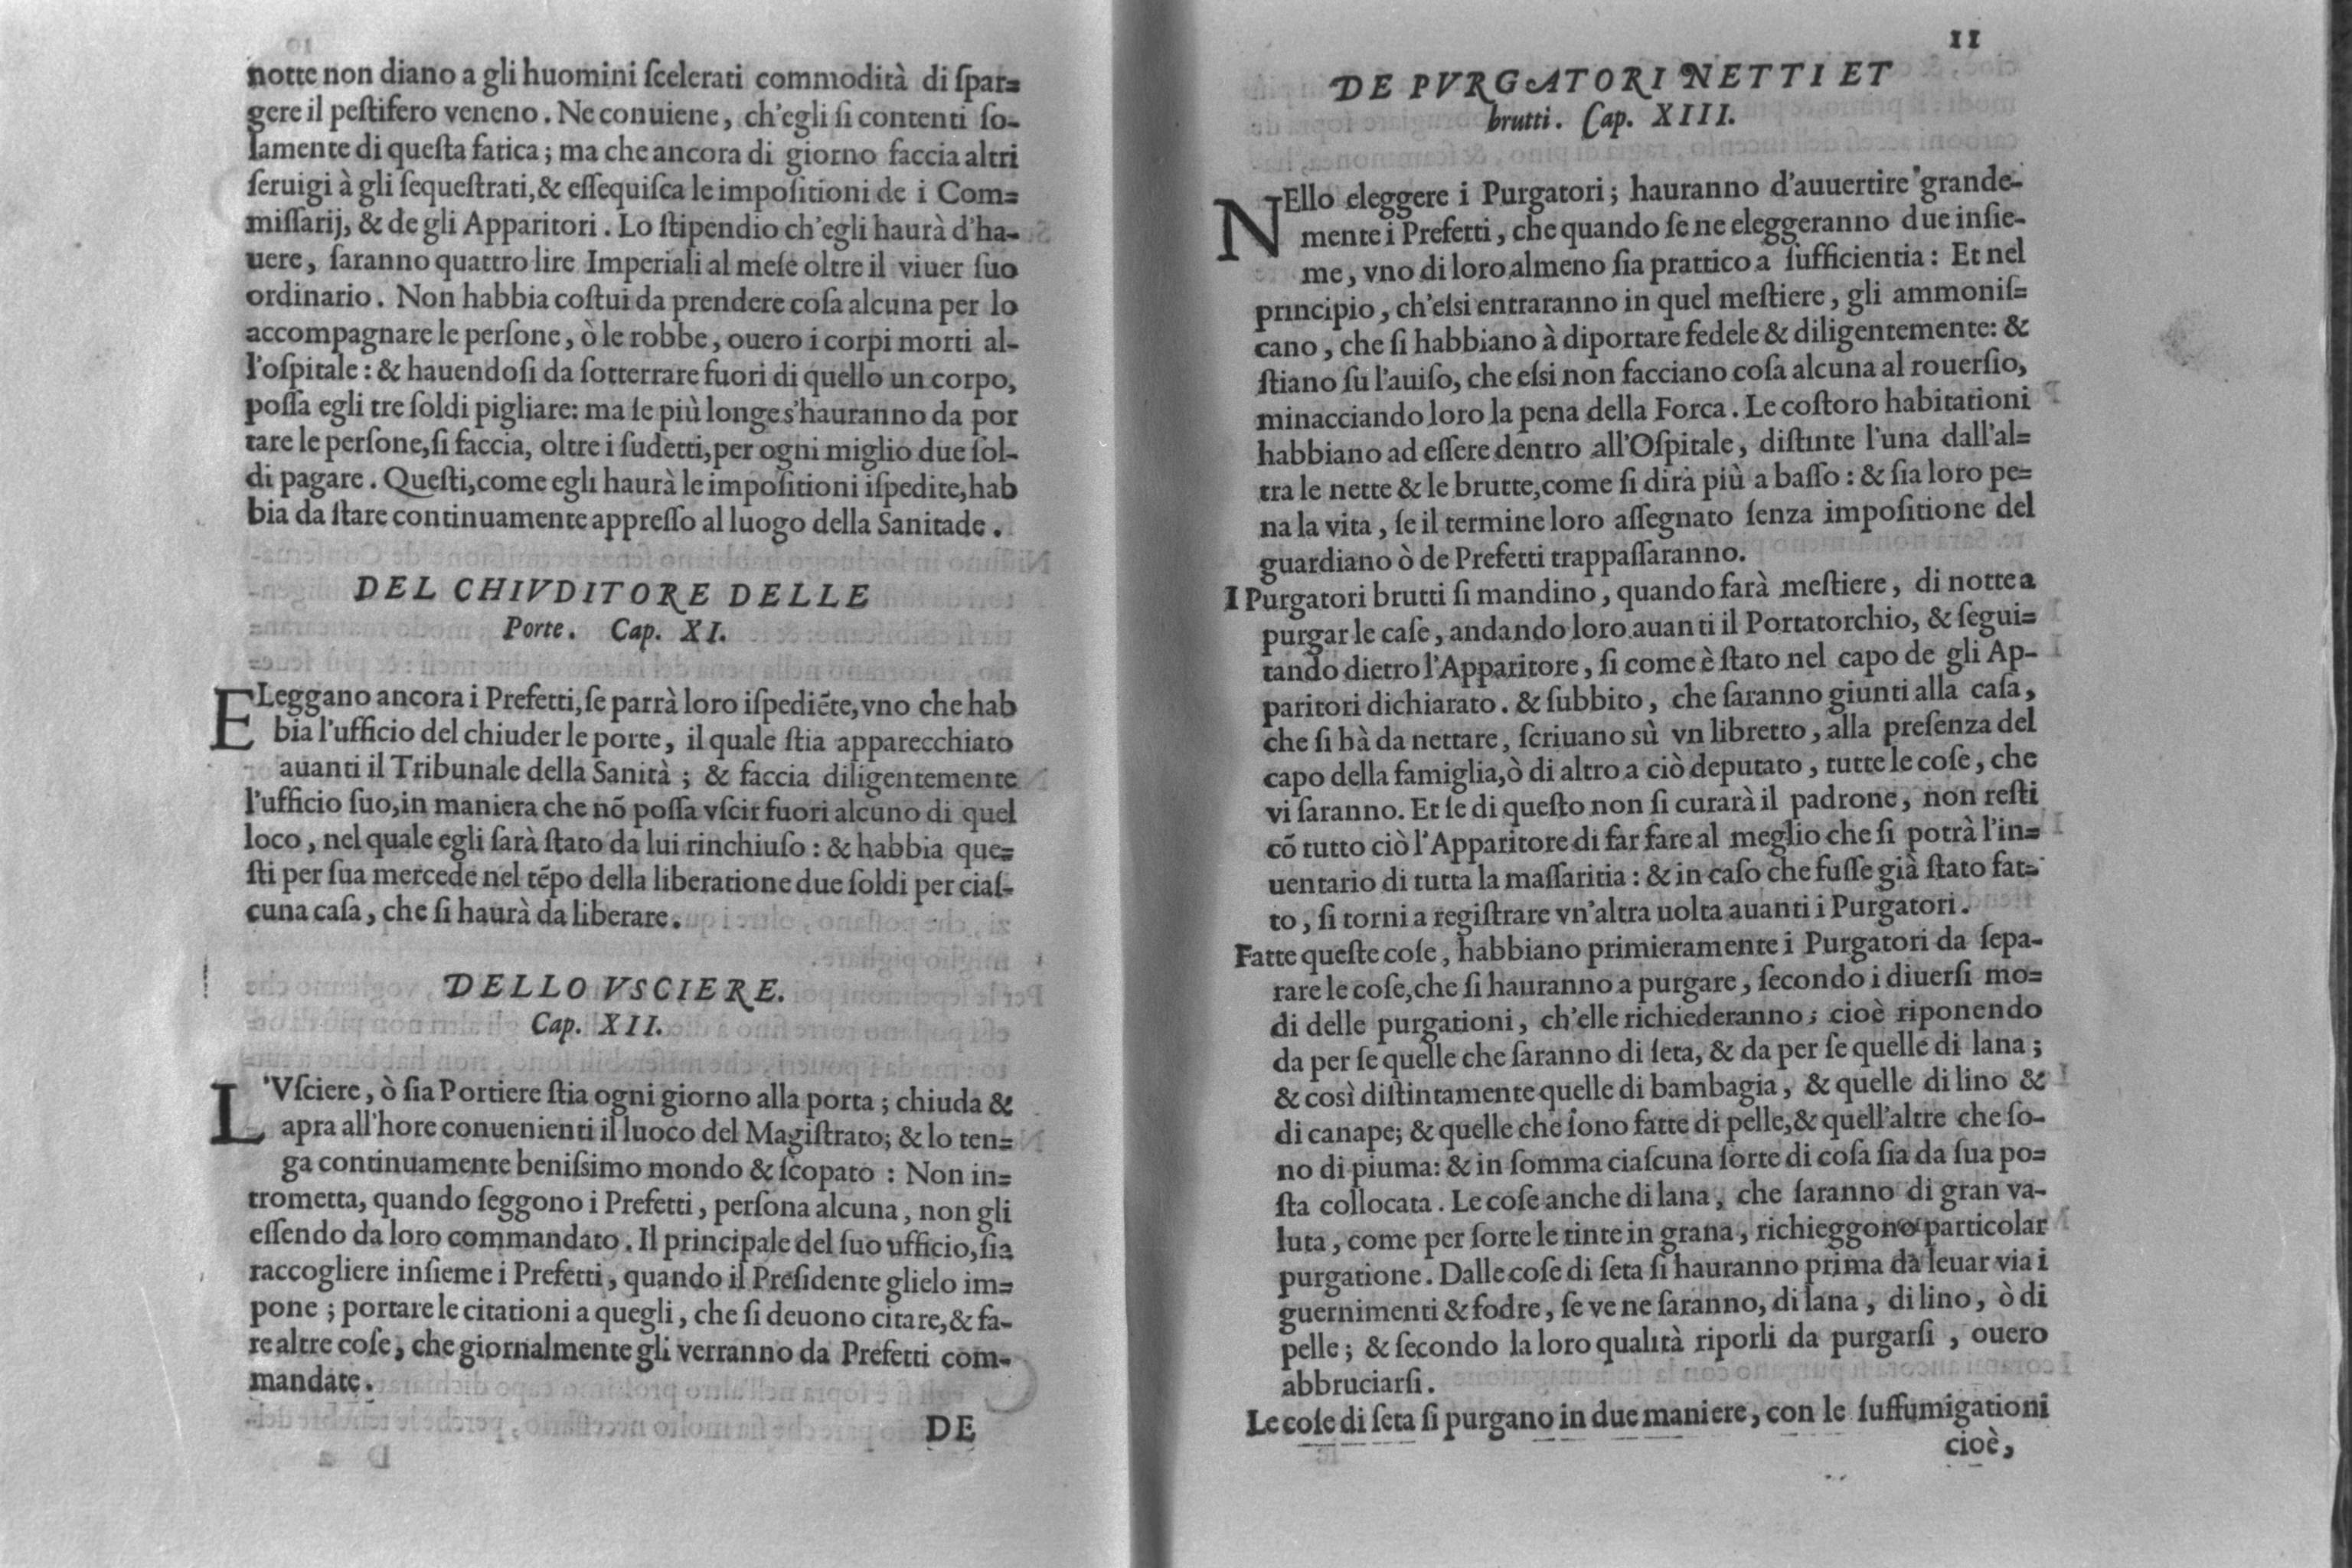 notte non diano a gli huomini ſcelerati commodità di ſpar=
gere il peſtifero veneno. Ne conuiene, ch'egli ſi contenti ſo-
lamente di queſta fatica; ma che ancora di giorno faccia altri
ſeruigi à gli ſequeſtrati, & eſſequiſca le impoſitioni de i Com=
miſſarij, & de gli Apparitori. Lo ſtipendio ch'egli haurà d'ha-
uere, ſaranno quattro lire Imperiali al meſe oltre il viuer ſuo
ordinario. Non habbia coſtui da prendere coſa alcuna per lo
accompagnare le perſone, ò le robbe, ouero i corpi morti al-
l'oſpitale: & hauendoſi da ſotterrare fuori di quello un corpo,
poſſa egli tre ſoldi pigliare: ma ſe più longe s'hauranno da por
tare le perſone, ſi faccia, oltre i ſudetti, per ogni miglio due ſol-
di pagare. Queſti, come egli haurà le impoſitioni iſpedite, hab
bia da ſtare continuamente appreſſo al luogo della Sanitade.
DEL CHIVDITORE DELLE
Porte. Cap. XI.
ELeggano ancora i Prefetti, ſe parrà loro iſpediẽte, vno che hab
bia l'ufficio del chiuder le porte, il quale ſtia apparecchiato
auanti il Tribunale della Sanità; & faccia diligentemente
l'ufficio ſuo, in maniera che nõ poſſa vſcir fuori alcuno di quel
loco, nel quale egli ſarà ſtato da lui rinchiuſo: & habbia que=
ſti per ſua mercede nel tẽpo della liberatione due ſoldi per ciaſ-
cuna caſa, che ſi haurà da liberare.
DELLO VSCIERE.
Cap. XII.
L'Vſciere, ò ſia Portiere ſtia ogni giorno alla porta; chiuda &
apra all'hore conuenienti il luoco del Magiſtrato; & lo ten=
ga continuamente beniſsimo mondo & ſcopato: Non in=
trometta, quando ſeggono i Prefetti, perſona alcuna, non gli
eſſendo da loro commandato. Il principale del ſuo ufficio, ſia
raccogliere inſieme i Prefetti, quando il Preſidente glielo im=
pone; portare le citationi a quegli, che ſi deuono citare, & fa-
re altre coſe, che giornalmente gli verranno da Prefetti com-
mandate.
DE
11
DE PVRGATORI NETTI ET
brutti. Cap. XIII.
NEllo eleggere i Purgatori; hauranno d'auuertire grande-
mente i Prefetti, che quando ſe ne eleggeranno due inſie-
me, vno di loro almeno ſia prattico a ſufficientia: Et nel
principio, ch'eſsi entraranno in quel meſtiere, gli ammoniſ=
cano, che ſi habbiano à diportare fedele & diligentemente: &
ſtiano ſu l'auiſo, che eſsi non facciano coſa alcuna al rouerſio,
minacciando loro la pena della Forca. Le coſtoro habitationi
habbiano ad eſſere dentro all'Oſpitale, diſtinte l'una dall'al=
tra le nette & le brutte, come ſi dirà più a baſſo: & ſia loro pe=
na la vita, ſe il termine loro aſſegnato ſenza impoſitione del
guardiano ò de Prefetti trappaſſaranno.
I Purgatori brutti ſi mandino, quando farà meſtiere, di notte a
purgar le caſe, andando loro auanti il Portatorchio, & ſegui=
tando dietro l'Apparitore, ſi come è ſtato nel capo de gli Ap-
paritori dichiarato. & ſubbito, che ſaranno giunti alla caſa,
che ſi hà da nettare, ſcriuano sù vn libretto, alla preſenza del
capo della famiglia, ò di altro a ciò deputato, tutte le coſe, che
vi ſaranno. Et ſe di queſto non ſi curarà il padrone, non reſti
cõ tutto ciò l'Apparitore di far fare al meglio che ſi potrà l'in=
uentario di tutta la maſſaritia: & in caſo che fuſſe già ſtato fat=
to, ſi torni a regiſtrare vn'altra uolta auanti i Purgatori.
Fatte queſte coſe, habbiano primieramente i Purgatori da ſepa-
rare le coſe, che ſi hauranno a purgare, ſecondo i diuerſi mo=
di delle purgationi, ch'elle richiederanno; cioè riponendo
da per ſe quelle che ſaranno di ſeta, & da per ſe quelle di lana;
& così diſtintamente quelle di bambagia, & quelle di lino &
di canape; & quelle che ſono fatte di pelle, & quell'altre che ſo-
no di piuma: & in ſomma ciaſcuna ſorte di coſa ſia da ſua po=
ſta collocata. Le coſe anche di lana, che ſaranno di gran va-
luta, come per ſorte le tinte in grana, richieggono particolar
purgatione. Dalle coſe di ſeta ſi hauranno prima da leuar via i
guernimenti & fodre, ſe ve ne ſaranno, di lana, di lino, ò di
pelle; & ſecondo la loro qualità riporli da purgarſi, ouero
abbruciarſi.
Le coſe di ſeta ſi purgano in due maniere, con le ſuffumigationi
cioè,